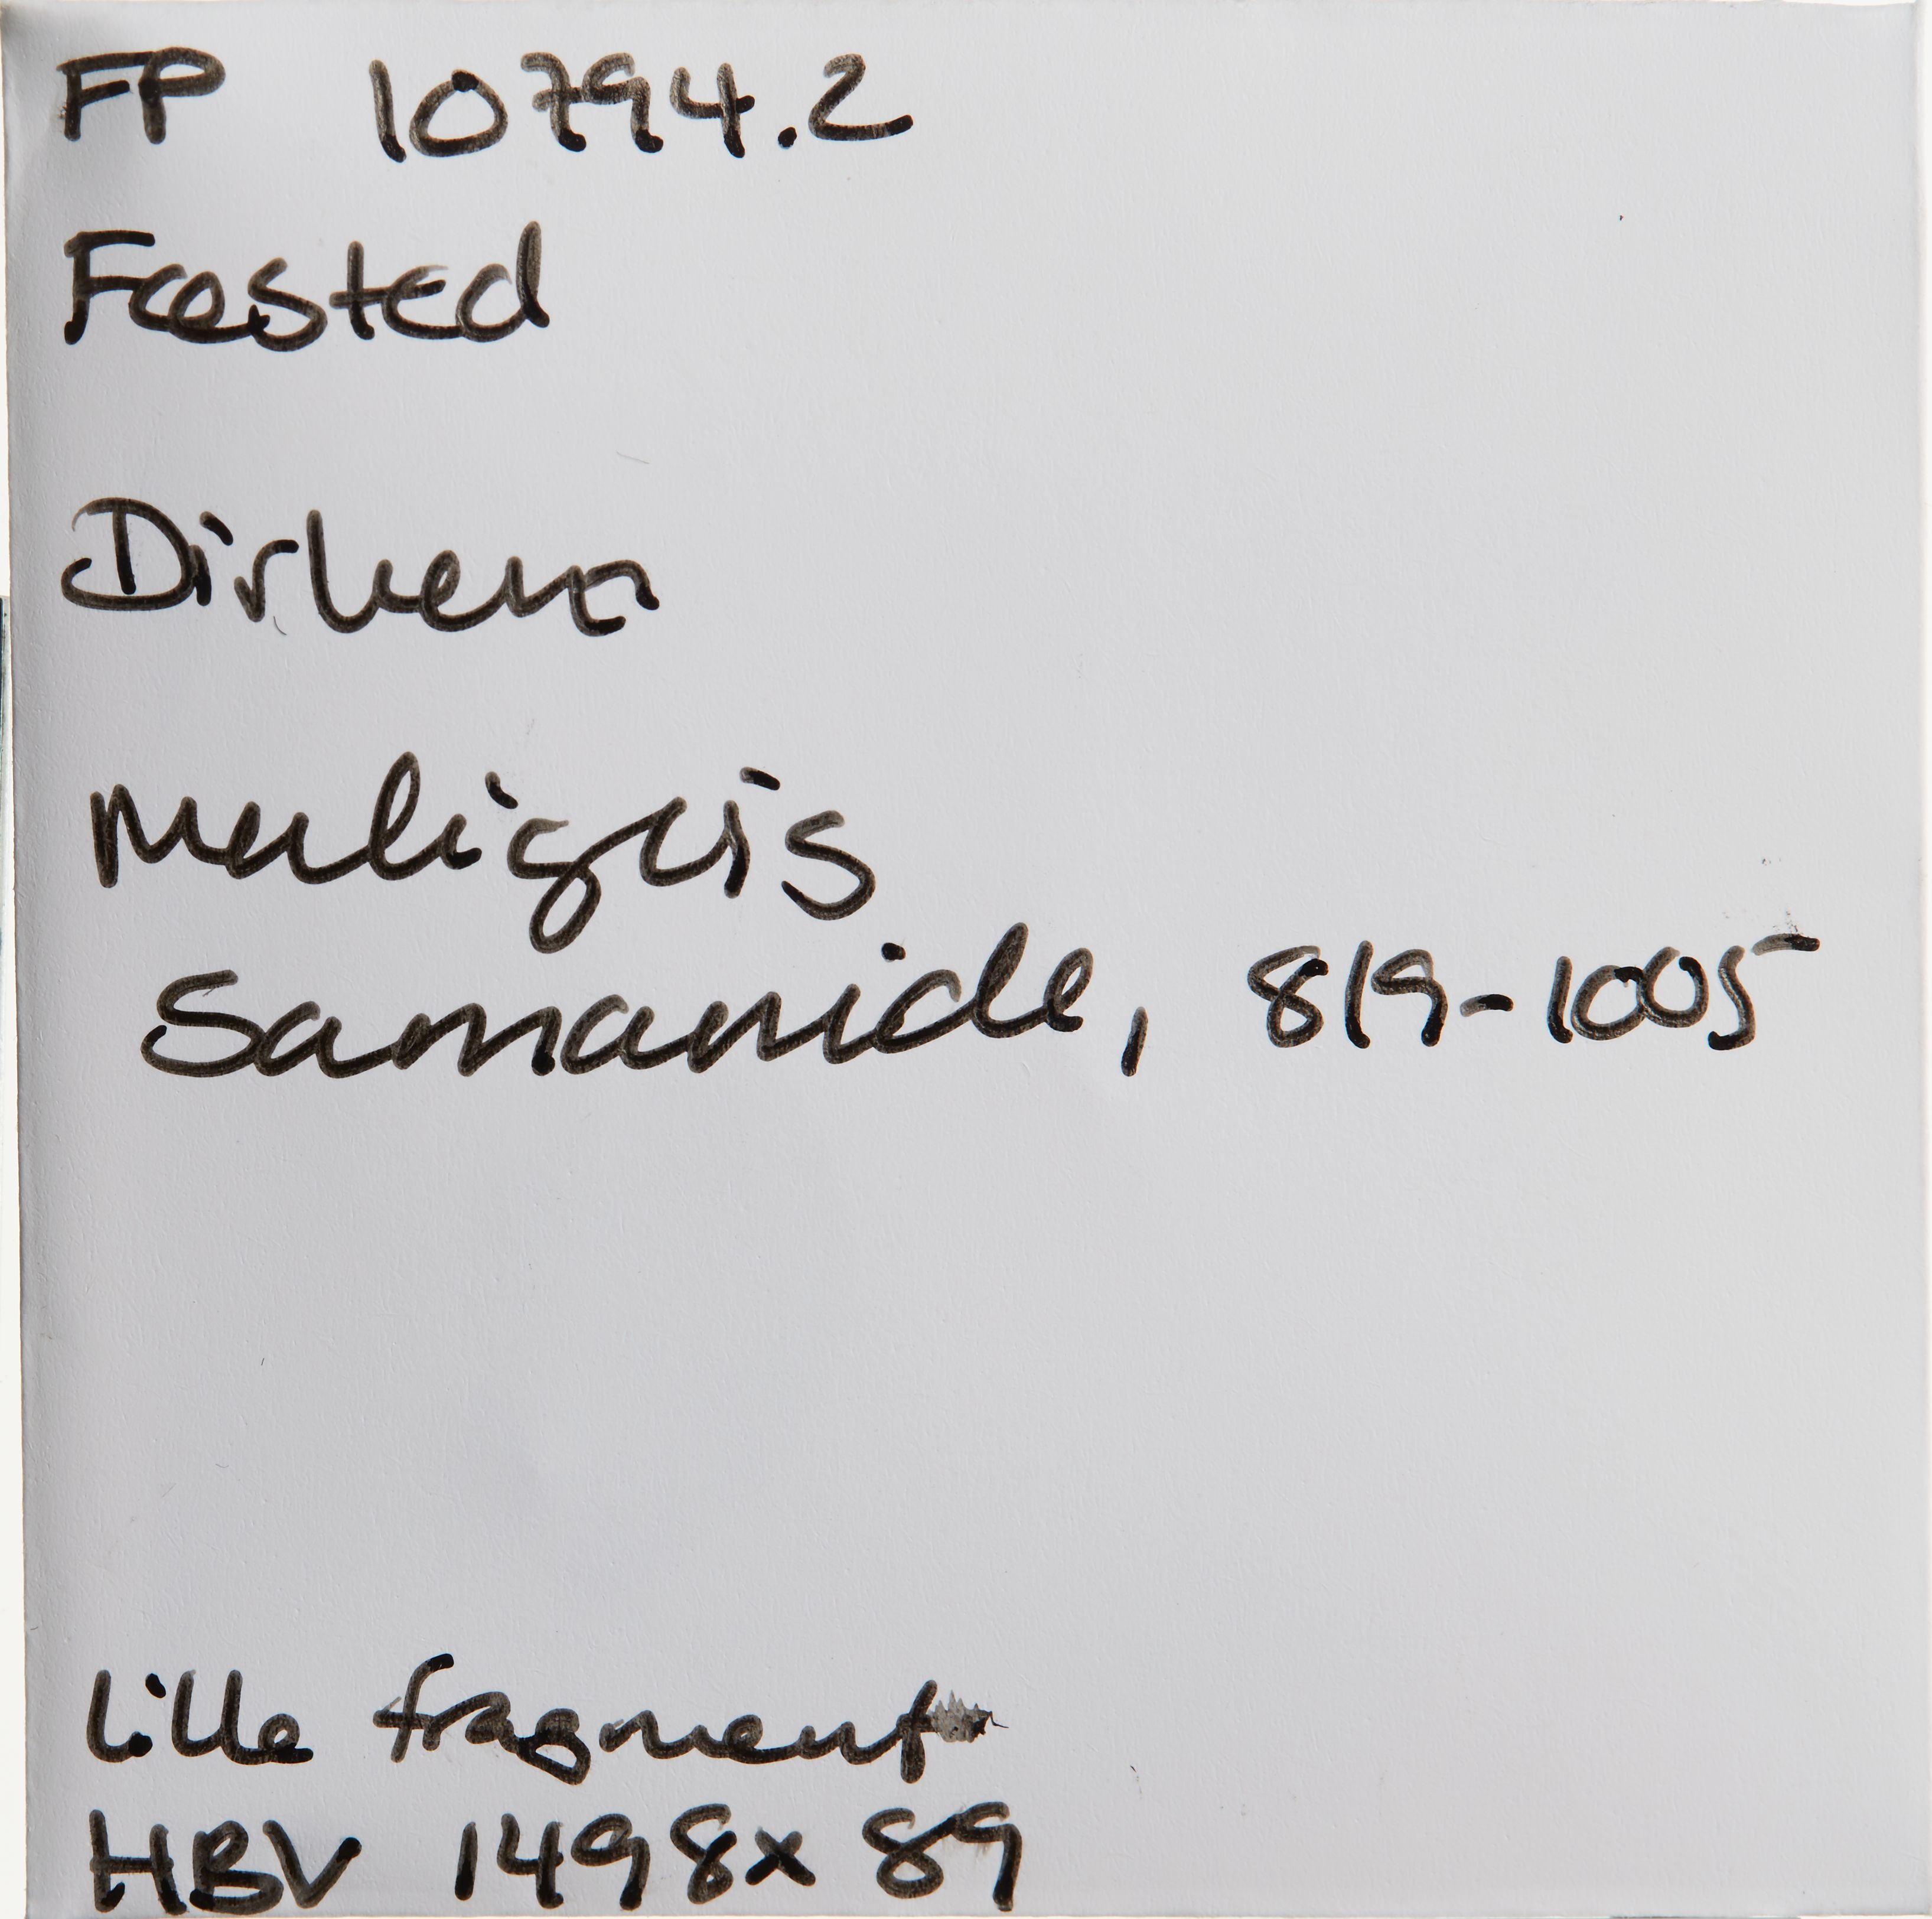 FP 10794.2
Fæsted
Dirhem
muligvis
Samanide, 819-1005
lille fragment
HBV 1498x89